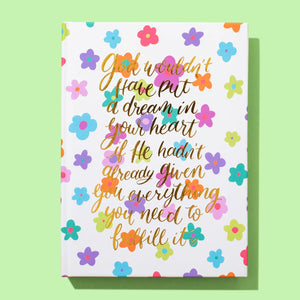 God wouldn't
have put
a dream in
your heart
if He hadn't
already given
you everything
you need to
fulfill it